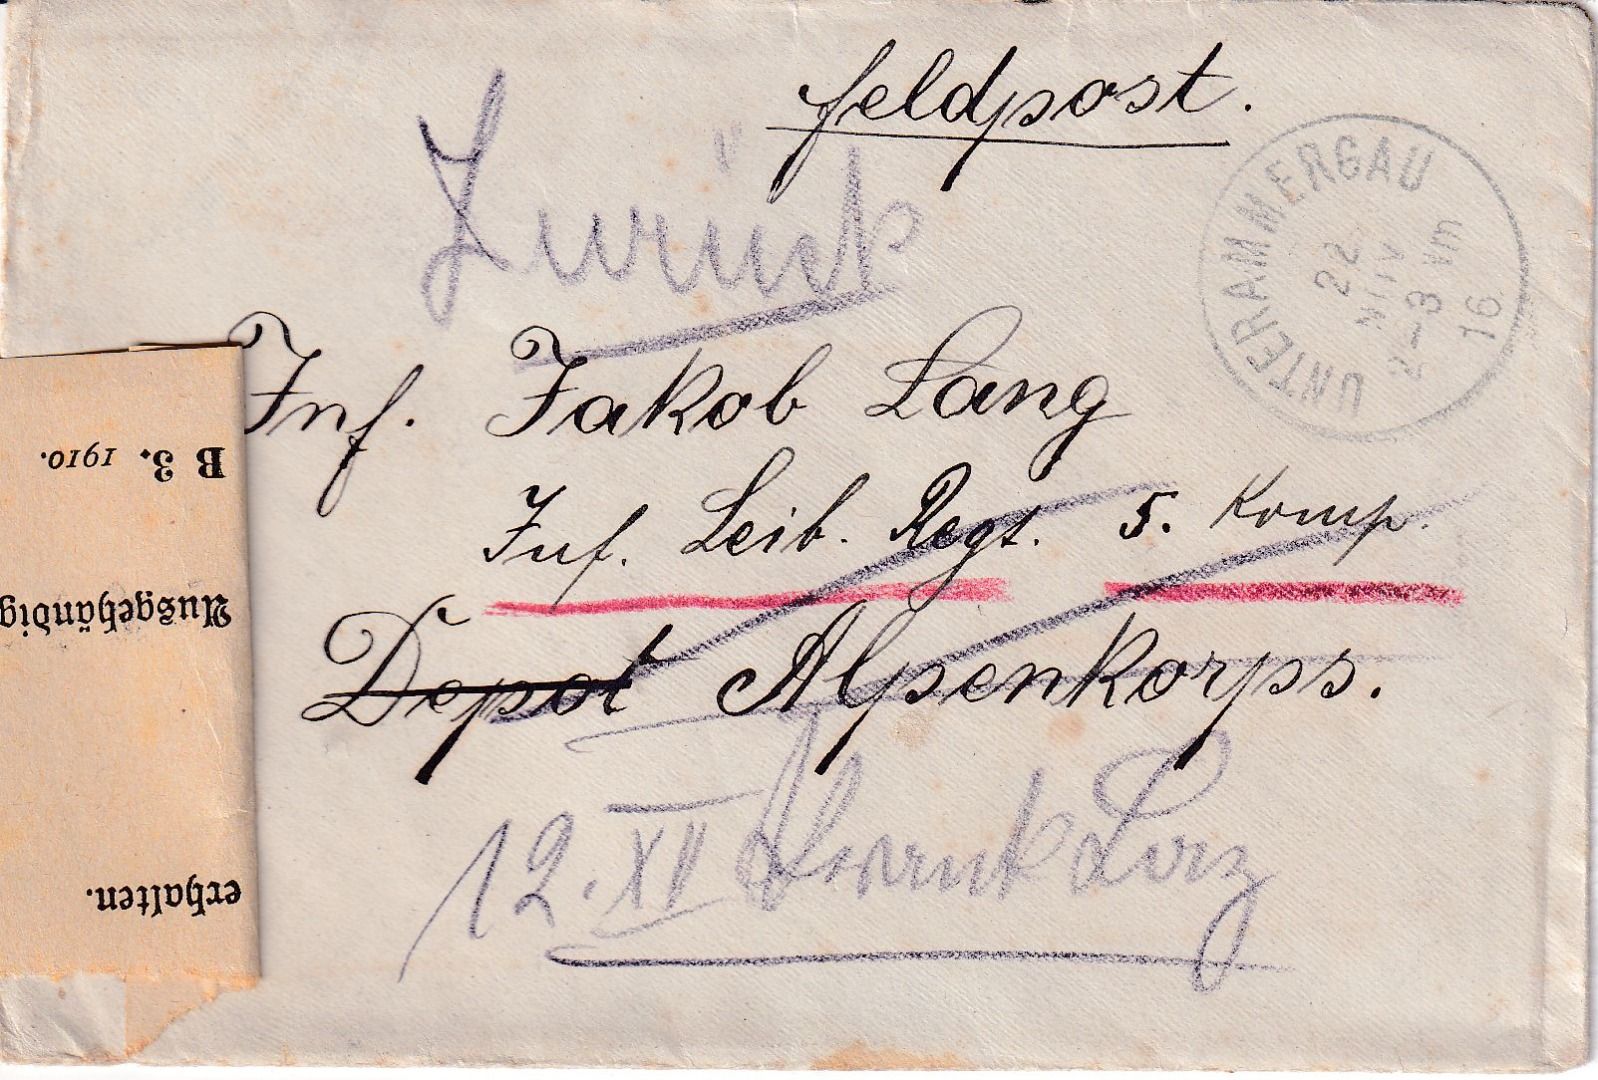 Feldpost.
Zurück
UNTERAMMERGAU
22
2-3 Vm
16
Inf. Jakob Lang
Inf. Leib. Regt. 5. Komp.
Depot Alpenkorps.
12.
B 3. 1910.
Ausgehändig
erhalten.